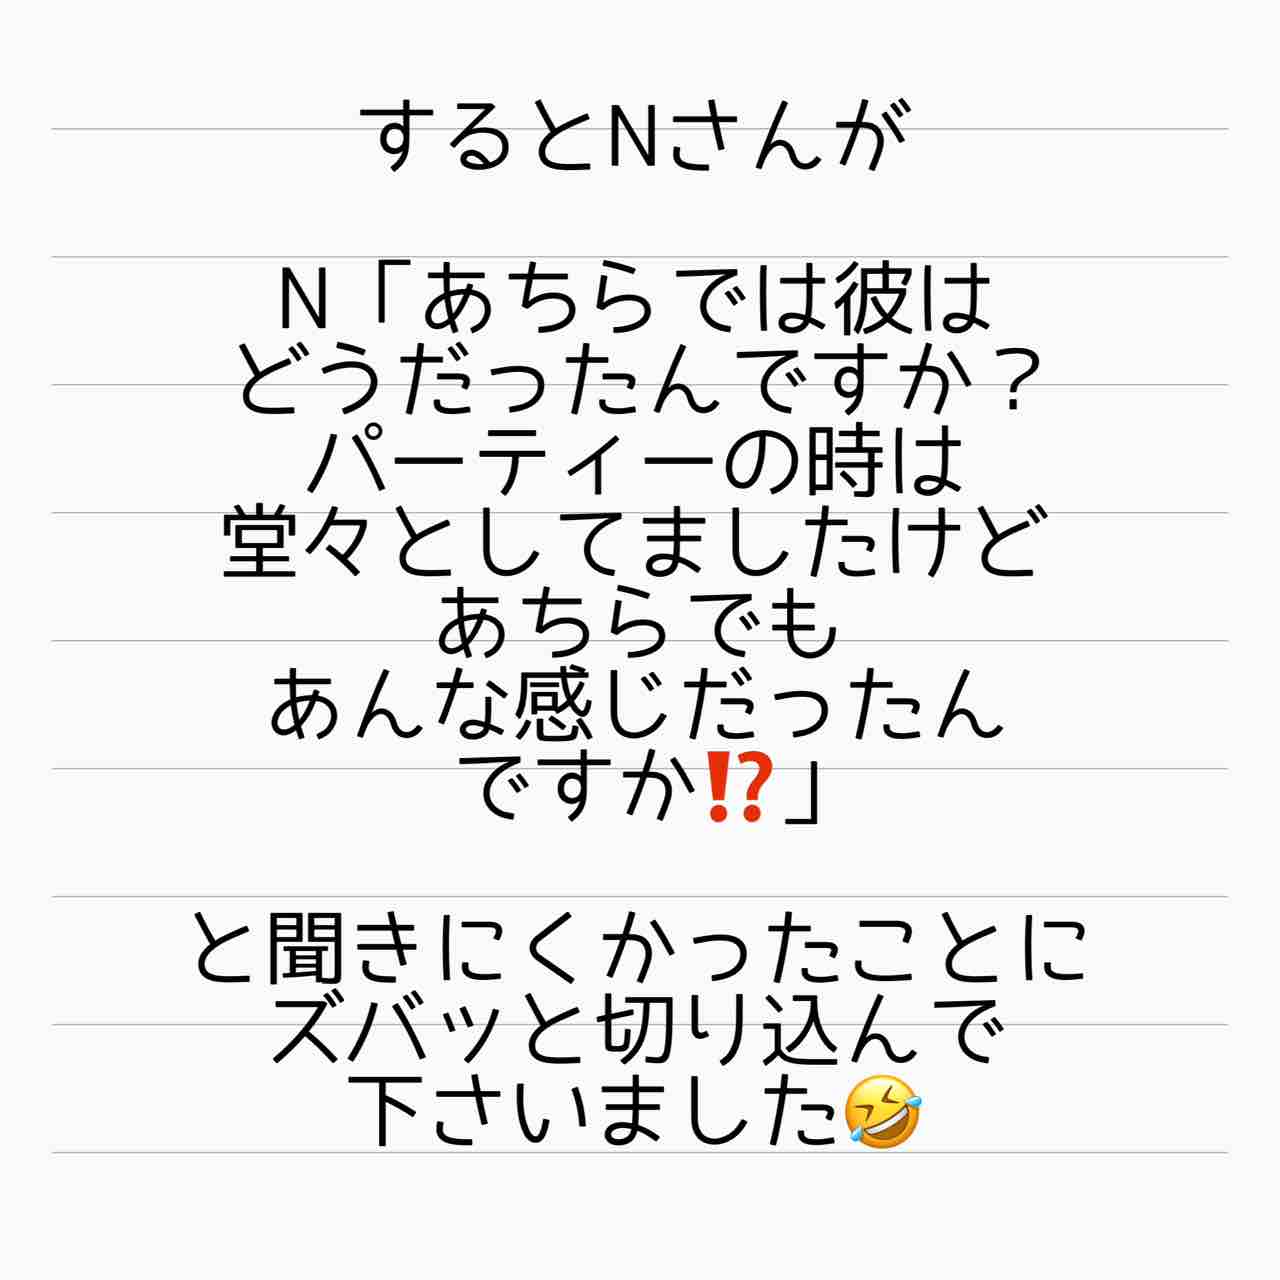 するとNさんが
N「あちらでは彼は
どうだったんですか？
パーティーの時は
堂々としてましたけど
あちらでも
あんな感じだったん
ですか⁉️」
と聞きにくかったことに
ズバッと切り込んで
下さいました🤣